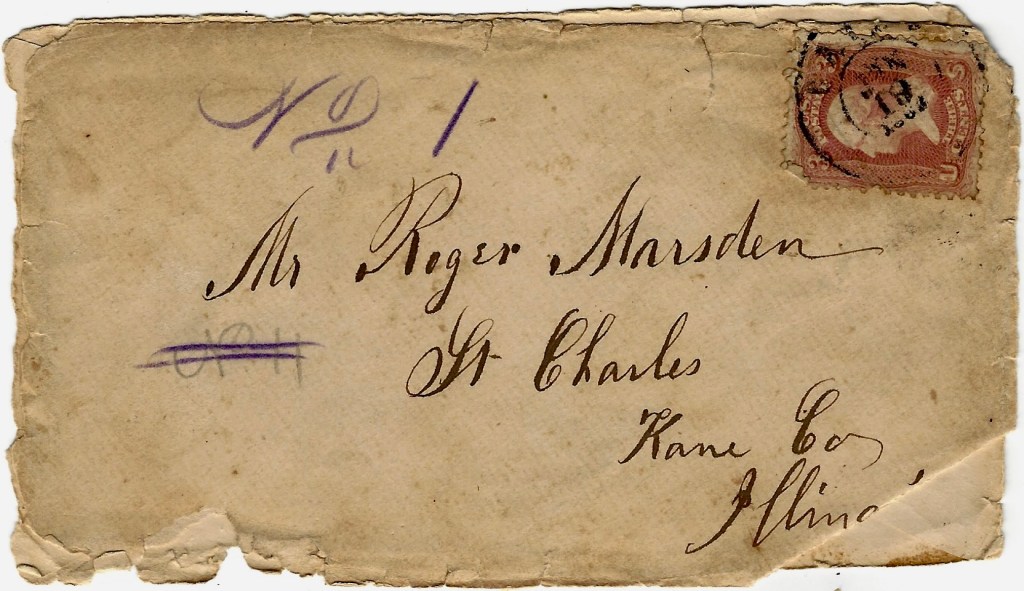 No 1
Mr Roger Marsden
St Charles
Kane Co
Illino